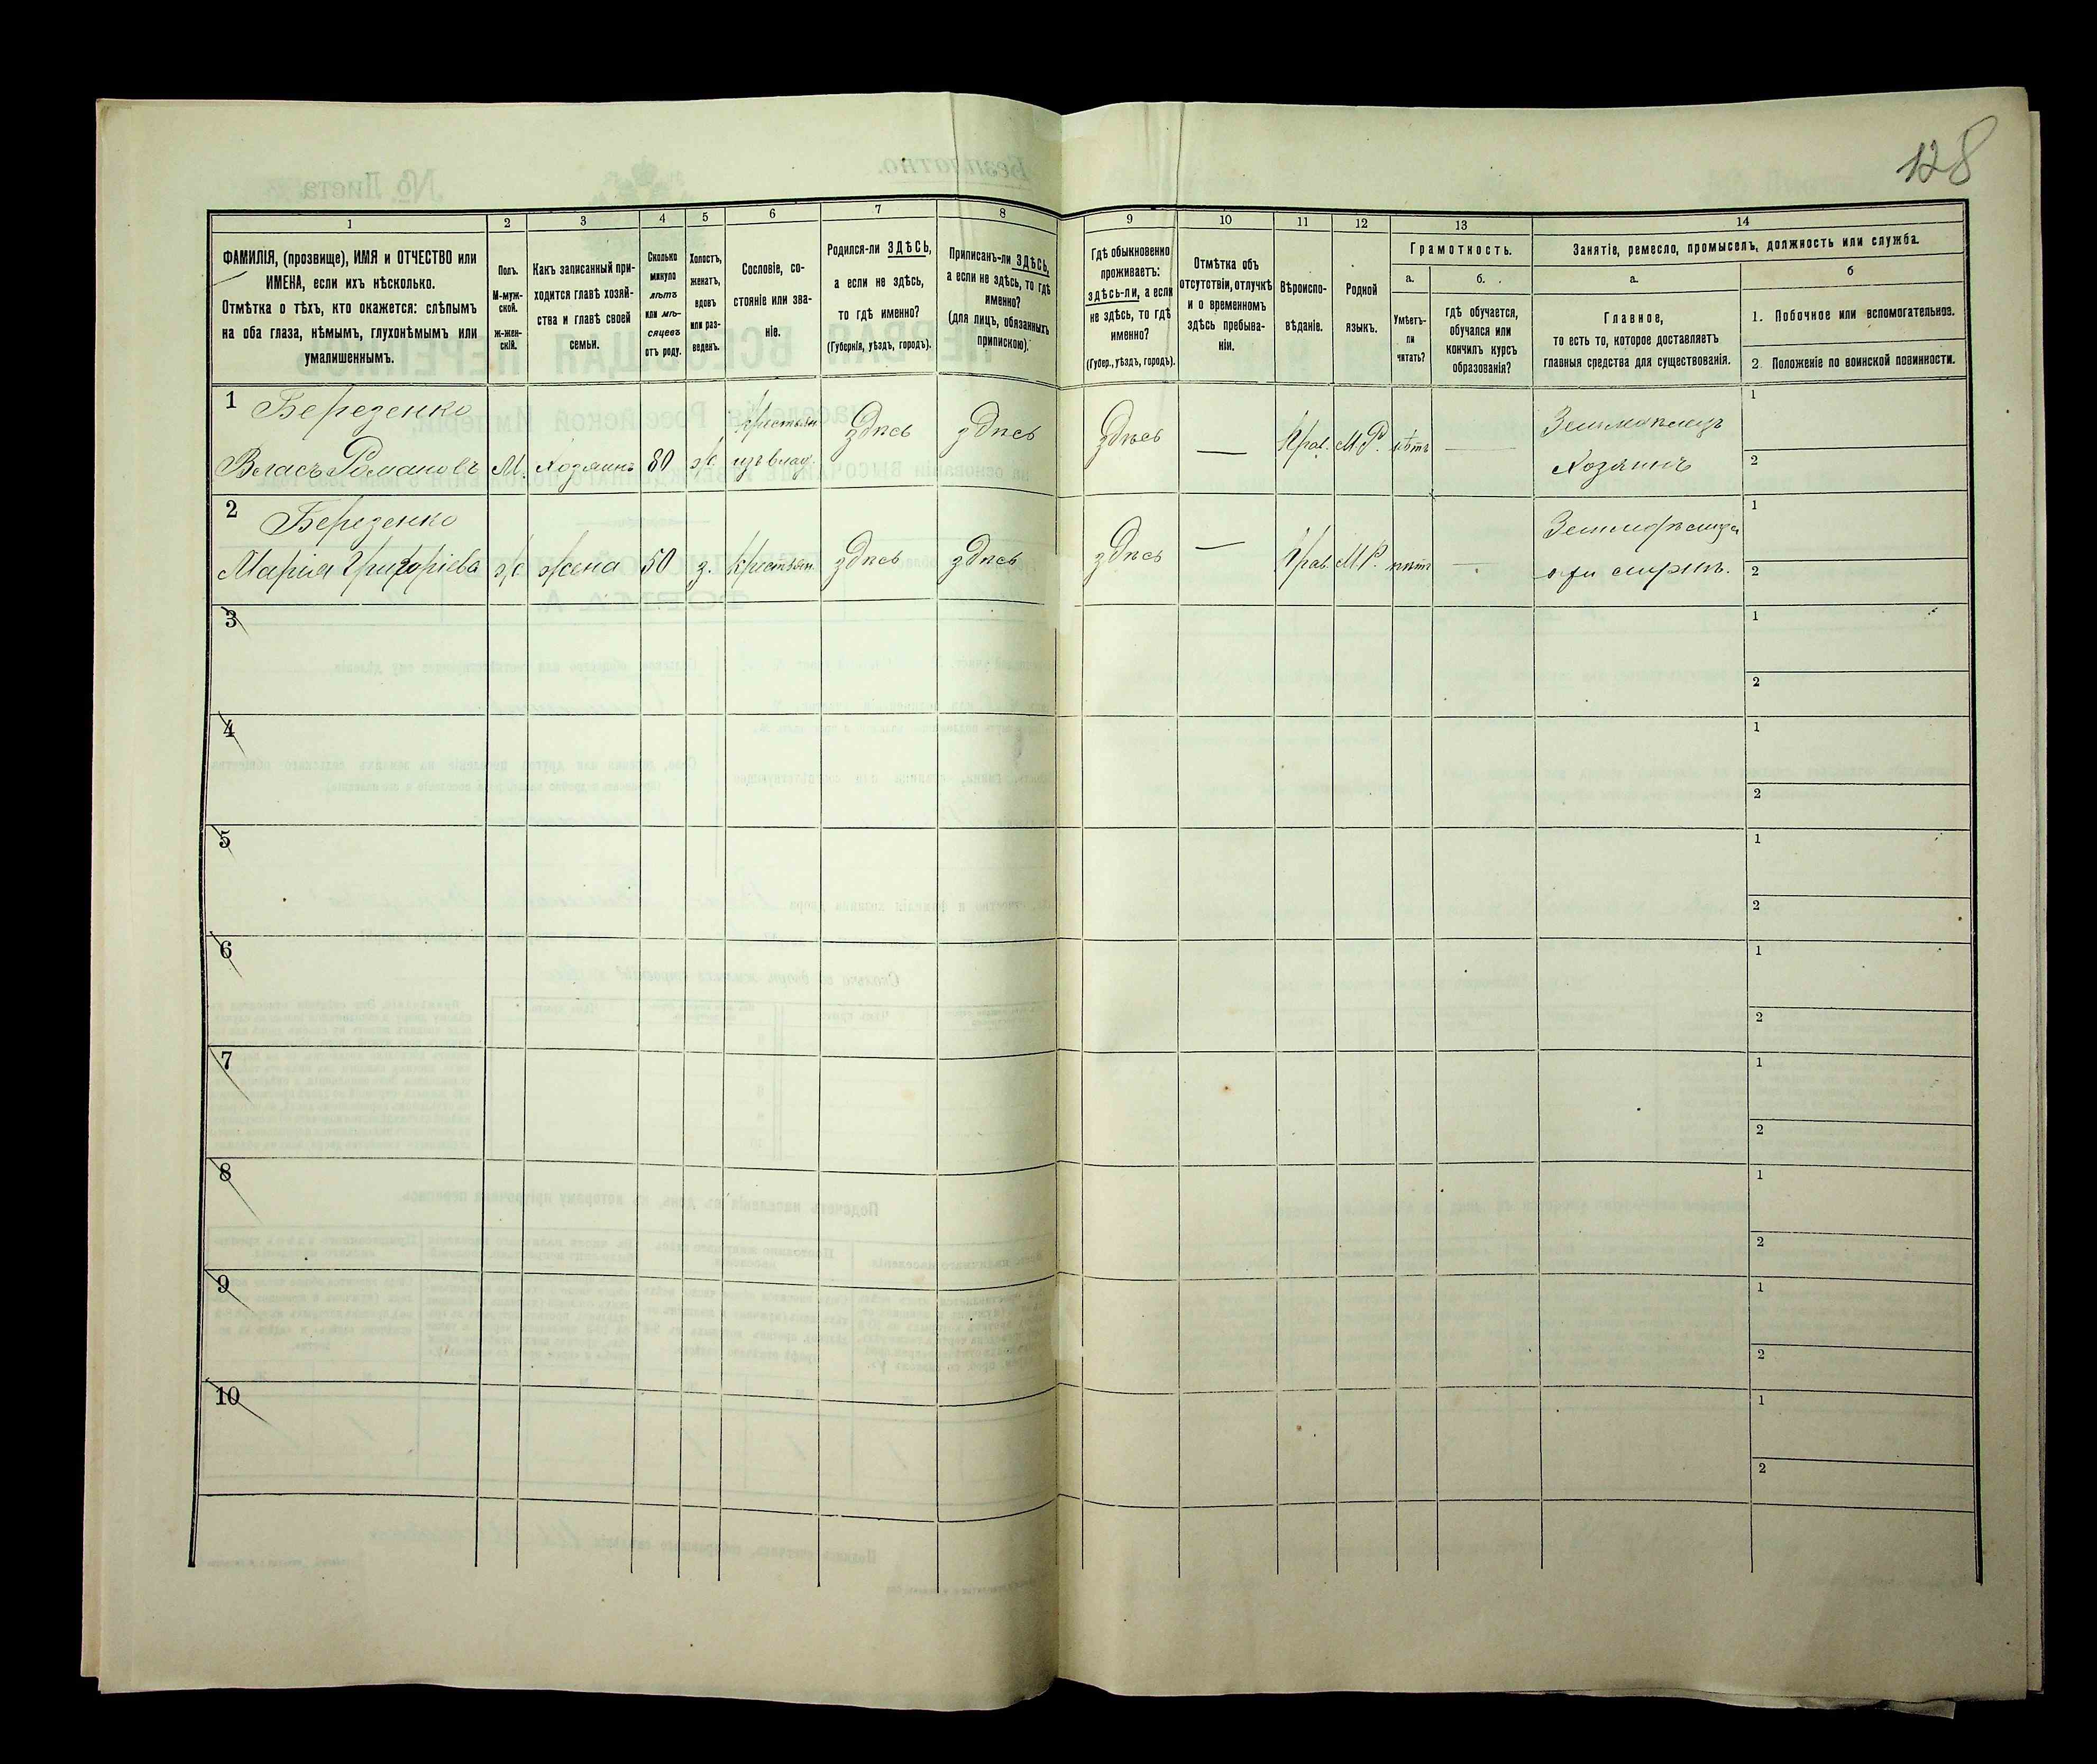 128
1 2 3 4 5 6 7 8 9 10 11 12 13 14
ФАМИЛІЯ, (прозвище), ИМЯ и ОТЧЕСТВО или
ИМЕНА, если ихъ нѣсколько.
Отмѣтка о тѣхъ, кто окажется: слѣпымъ
на оба глаза, нѣмымъ, глухонѣмымъ или
умалишеннымъ.
Полъ.
М-муж-
ской.
ж-жен-
скій.
Какъ записанный при-
ходится главѣ хозяй-
ства и главѣ своей
семьи.
Сколько
минуло
лѣтъ
или мѣ-
сяцевъ
отъ роду.
Холостъ,
женатъ,
вдовъ
или раз-
веденъ.
Сословіе, со-
стояніе или зва-
ніе.
Родился-ли ЗДѢСЬ,
а если не здѣсь,
то гдѣ именно?
(Губернія, уѣздъ, городъ).
Приписанъ-ли ЗДѢСЬ,
а если не здѣсь, то гдѣ
именно?
(для лицъ, обязанныхъ
припискою).
Гдѣ обыкновенно
проживаетъ:
здѣсь-ли, а если
не здѣсь, то гдѣ
именно?
(Губер., уѣздъ, городъ).
Отмѣтка объ
отсутствіи, отлучкѣ
и о временномъ
здѣсь пребыва-
ніи.
Вѣроиспо-
вѣданіе.
Родной
языкъ.
Грамотность.
а.
Умѣетъ-
ли
читать?
б.
гдѣ обучается,
обучался или
кончилъ курсъ
образованія?
Занятіе, ремесло, промыселъ, должность или служба.
а.
Главное,
то есть то, которое доставляетъ
главныя средства для существованія.
б
1. Побочное или вспомогательное.
2. Положеніе по воинской повинности.
1 Березенко
Власъ Романовъ М. Хозяинъ 80 ж. крестьян. изъ влад. здѣсь здѣсь здѣсь — Прав. М.Р. нѣтъ — Земледѣлецъ
Хозяинъ
1
2
2 Березенко
Марія Григоріева ж жена 50 з. крестьян. здѣсь здѣсь здѣсь — Прав. М.Р. нѣтъ —
1
2
3 1
2
4 1
2
5 1
2
6 1
2
7 1
2
8 1
2
9 1
2
10 1
2